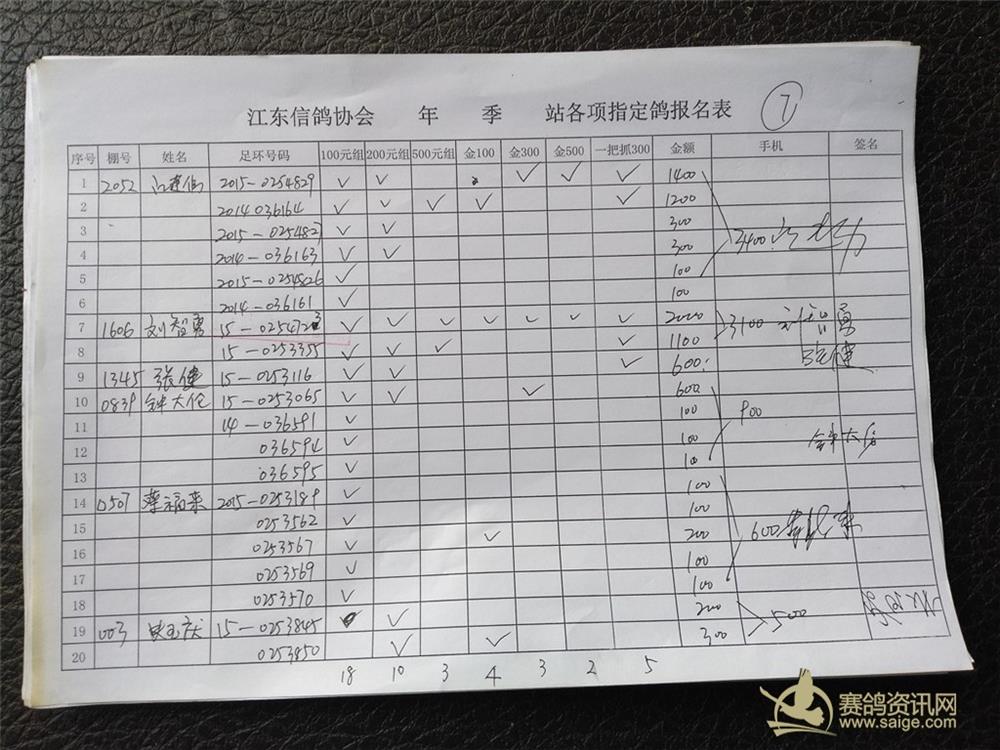 江东信鸽协会 年 季 站各项指定鸽报名表 7
序号 棚号 姓名 足环号码 100元组 200元组 500元组 金100 金300 金500 一把抓300 金额 手机 签名
1 2052 2015-0254829 ✓ ✓ ✓ ✓ ✓ 1400
2 2014 036164 ✓ ✓ ✓ ✓ ✓ 1200
3 2015-0254827 ✓ ✓ 300
4 2014-036163 ✓ ✓ 300 3400
5 2015-0254826 ✓ 100
6 2014-036161 ✓ 100
7 1606 刘智勇 15-025472 ✓ ✓ ✓ ✓ ✓ ✓ ✓ 2000 3100 刘智勇
8 15-0253355 ✓ ✓ ✓ ✓ 1100
9 1345 张健 15-0253116 ✓ ✓ ✓ 600 张健
10 0839 钟大伦 15-0253065 ✓ ✓ ✓ 600
11 14-036591 ✓ 100 900
12 036594 ✓ 100 钟大伦
13 036595 ✓ 100
14 0507 蔡福来 2015-0253189 ✓ 100
15 0253562 ✓ 100
16 0253567 ✓ ✓ 200 600 蔡福来
17 0253569 ✓ 100
18 0253570 ✓ 100
19 003 15-0253845 ✓ 200 500
20 0253850 ✓ ✓ 300
18 10 3 4 3 2 5
赛鸽资讯网
www.saige.com